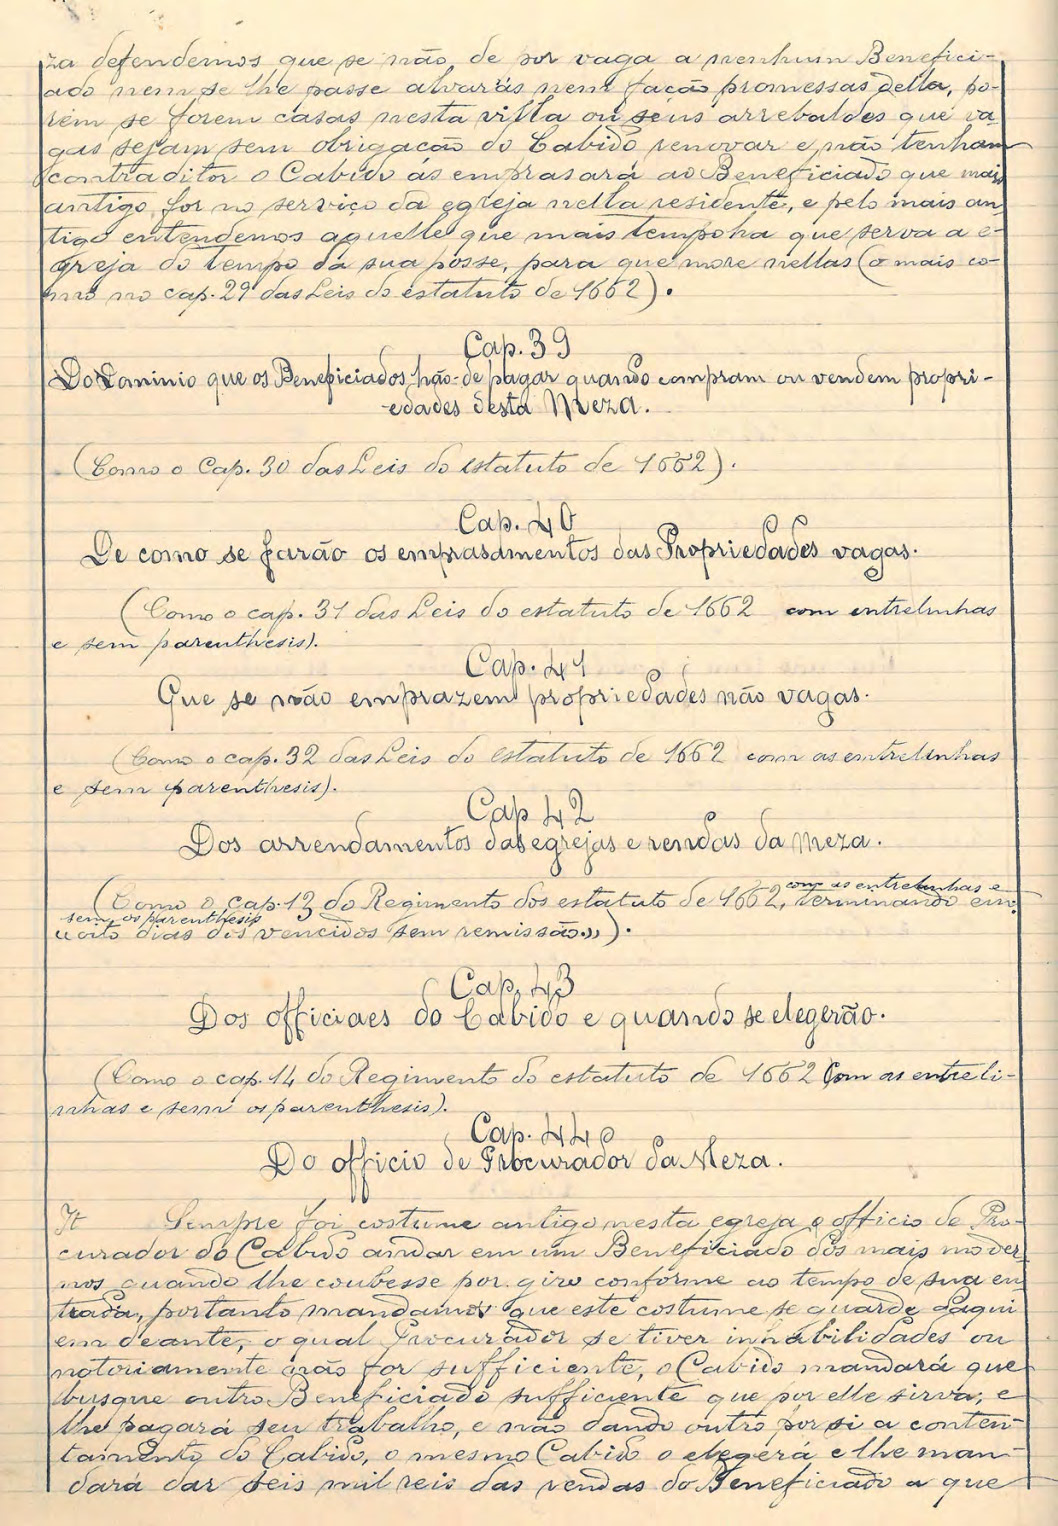 za defendemos que se não, de por vaga a nenhum Benefici-
ado nem se lhe passe alvarás nem fação promessas della, po-
rém se forem casas nesta villa ou seus arrebaldes que va-
gas sejam sem obrigação do Cabido renovar e não tenham
contraditor o Cabido ás emprasará ao Beneficiado que mais
antigo for no serviço da egreja nella residente, e pelo mais an-
tigo entendemos aquelle que mais tempo ha que serva a e-
greja do tempo da sua posse, para que more nellas (o mais co-
mo no cap. 29 das Leis do estatuto de 1662).
Cap. 39
Do Dominio que os Beneficiados hão-de pagar quando compram ou vendem propri-
-edades desta Meza.
(Como o Cap. 30 das Leis do estatuto de 1662).
Cap. 40
De como se farão os emprasamentos das Propriedades vagas.
(Como o cap. 31 das Leis do estatuto de 1662 com entrelinhas
e sem parenthesis).
Cap. 41
Que se não emprazem propriedades não vagas.
(Como o cap. 32 das Leis do estatuto de 1662 com as entrelinhas
e sem parenthesis).
Cap 42
Dos arrendamentos das egrejas e rendas da Meza.
(Como o cap. 13 do Regimento dos estatuto de 1662, com as entrelinhas e
sem os parenthesis terminando em:
«oito dias dos vencidos sem remissão»).
Cap. 43
Dos officiaes do Cabido e quando se elegerão.
(Como o cap. 14 do Regimento do estatuto de 1662 com as entreli-
nhas e sem os parenthesis).
Cap. 44º
Do officio de Procurador da Meza.
It Sempre foi costume antigo nesta egreja o officio de Pro-
curador do Cabido andar em um Beneficiado dos mais moder-
nos quando lhe coubesse por giro conforme ao tempo de sua en-
trada, portanto mandamos que este costume se guarde daqui
em deante, o qual Procurador se tiver inhabilidades ou
notoriamente não for sufficiente, o Cabido mandará que
busque outro Beneficiado sufficiente que por elle sirva, e
lhe pagará seu trabalho, e não dando outro por si a conten-
tamento do Cabido, o mesmo Cabido o elegerá e lhe man-
dará dar seis mil reis das rendas do Beneficiado a que